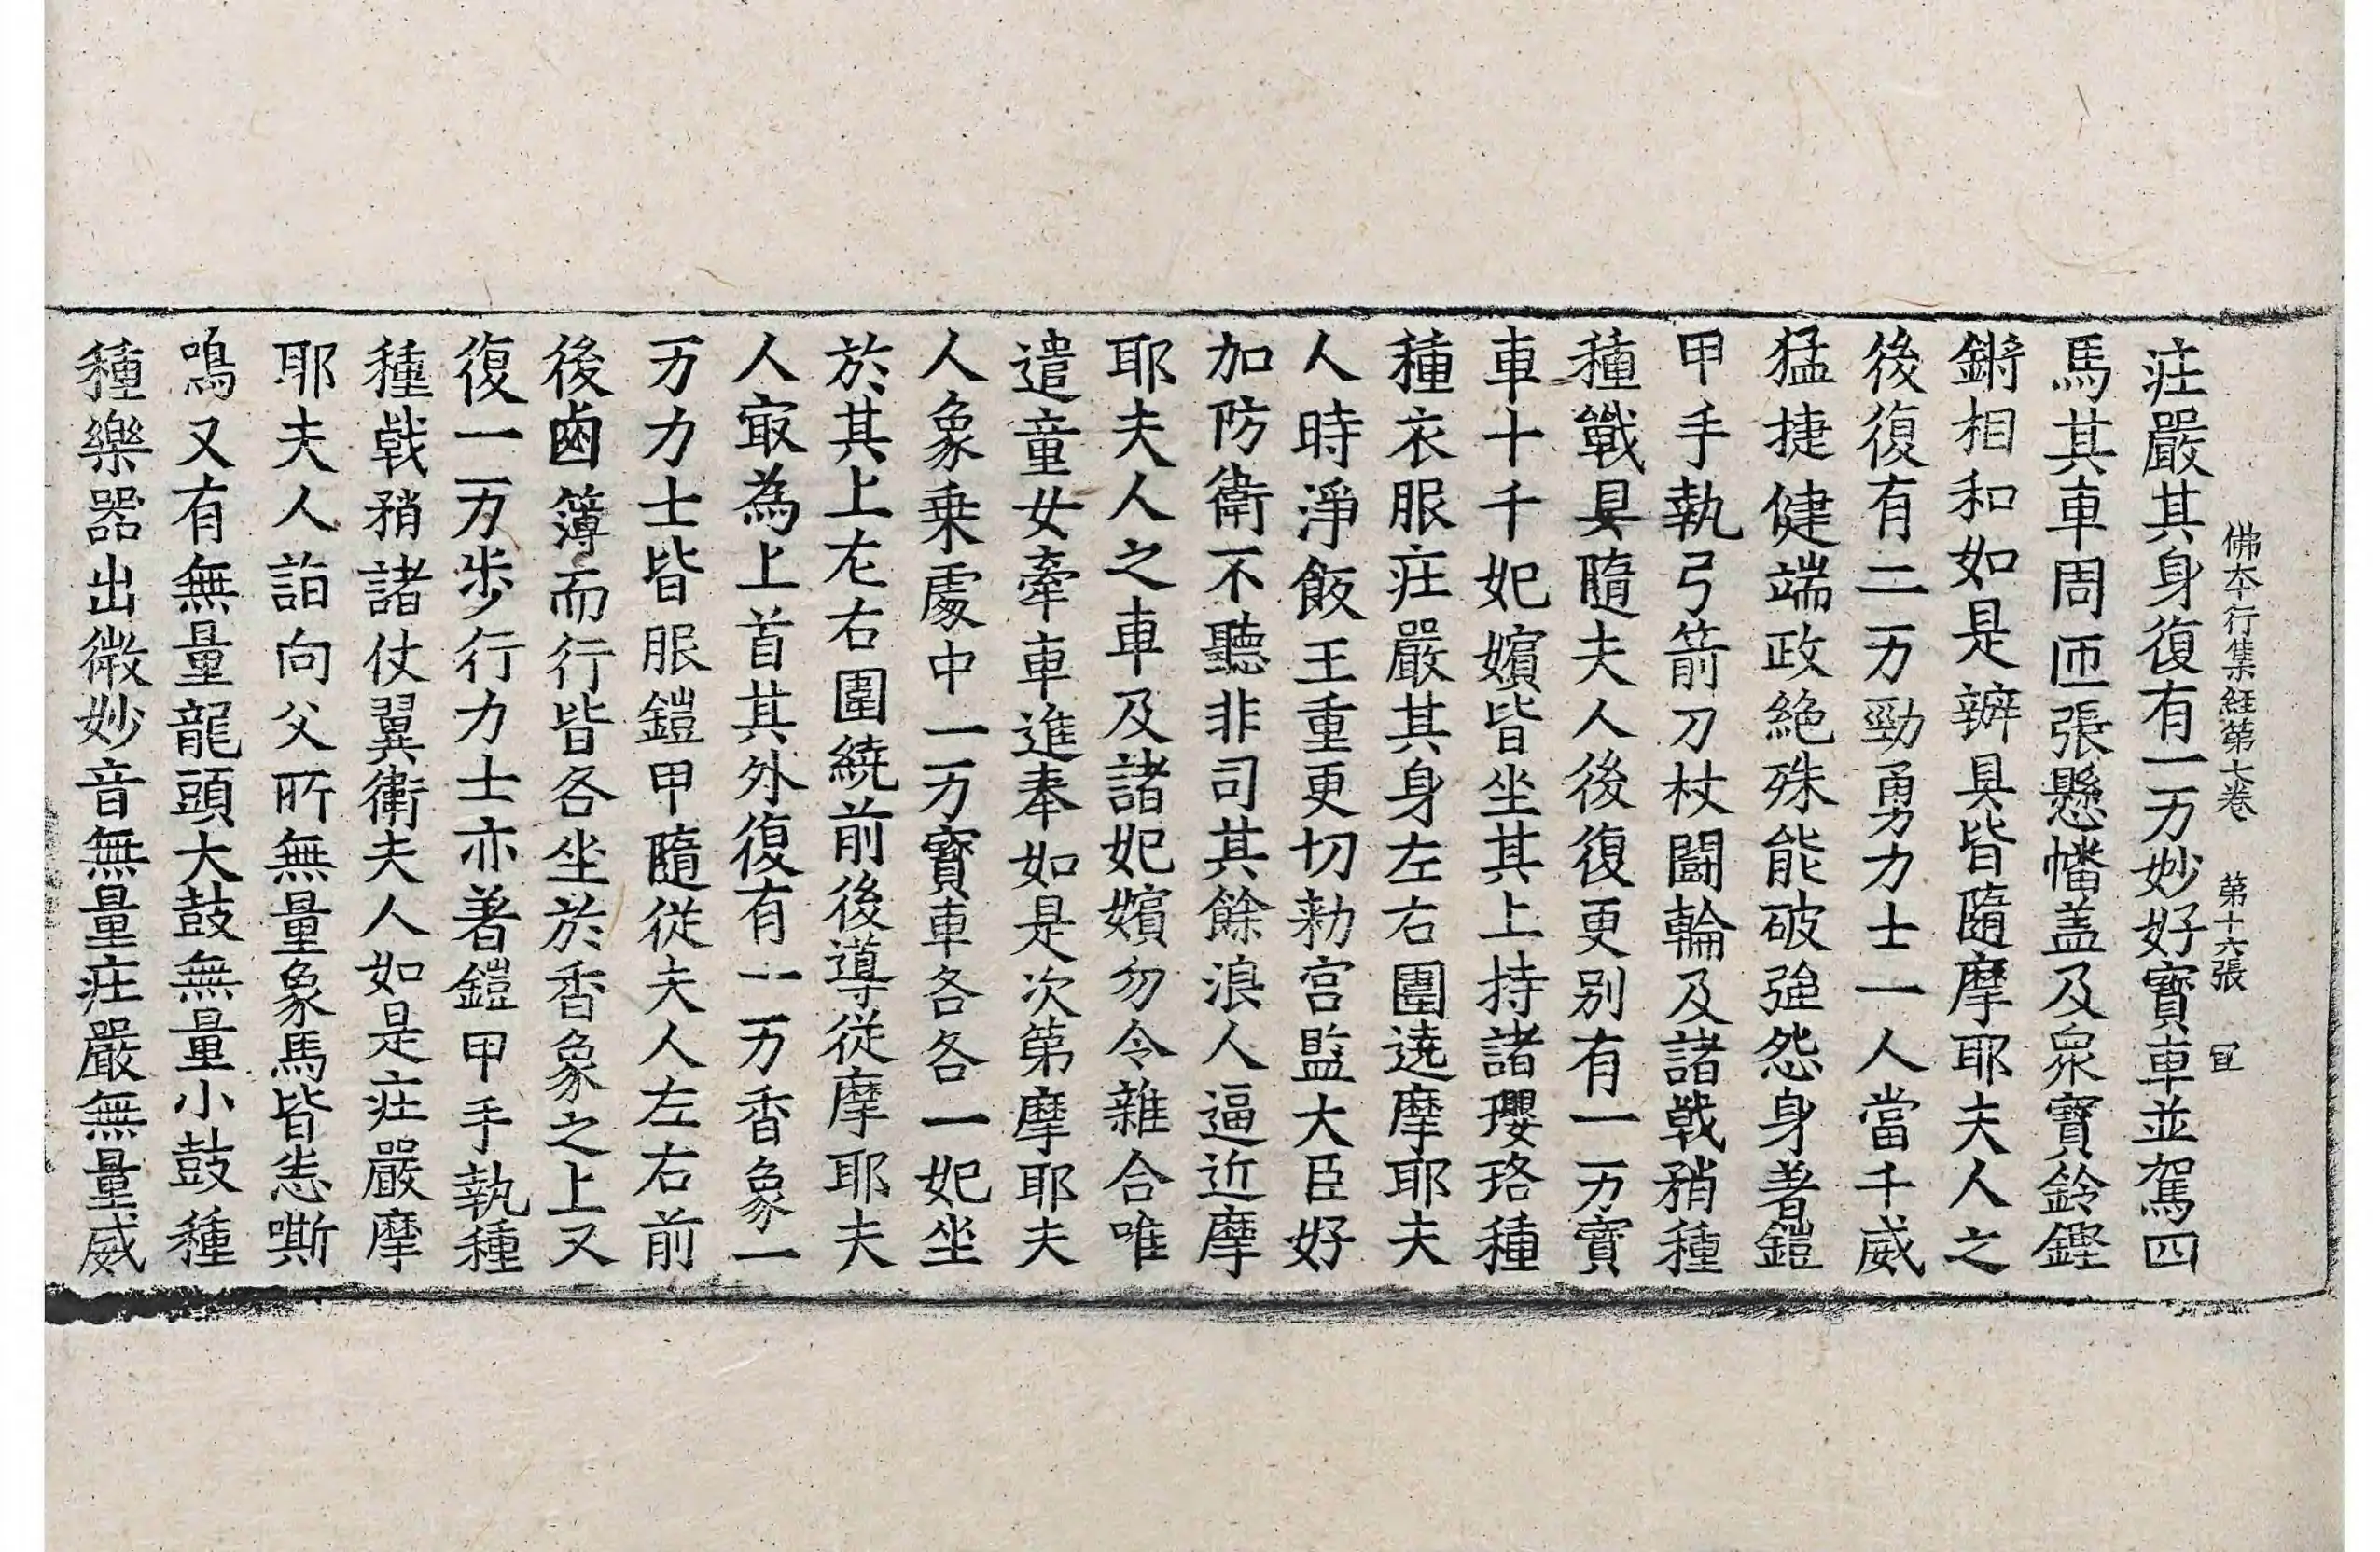 佛本行集経第七卷　第十六張　冝
庄嚴其身復有一万妙好寳車並駕四
馬其車周匝張懸幡盖及衆寳鈴鏗
鏘相和如是辦具皆隨摩耶夫人之
後復有二万勁勇力士一人當千威
猛捷健端政絶殊能破強怨身著鎧
甲手執弓箭刀杖鬪輪及諸戟矟種
種戰具隨夫人後復更别有一万寳
車十千妃嬪皆坐其上持諸瓔珞種
種衣服庄嚴其身左右圍遶摩耶夫
人時淨飯王重更切勑宫監大臣好
加防衛不聽非司其餘浪人逼近摩
耶夫人之車及諸妃嬪勿令雜合唯
遣童女牽車進奉如是次第摩耶夫
人象乗處中一万寳車各各一妃坐
於其上左右圍繞前後導従摩耶夫
人㝡為上首其外復有一万香象一
万力士皆服鎧甲隨従夫人左右前
後鹵簿而行皆各坐於香象之上又
復一万歩行力士亦著鎧甲手執種
種戟矟諸仗翼衛夫人如是庄嚴摩
耶夫人詣向父所無量象馬皆悲嘶
鳴又有無量龍頭大鼓無量小鼓種
種樂器出微妙音無量庄嚴無量威